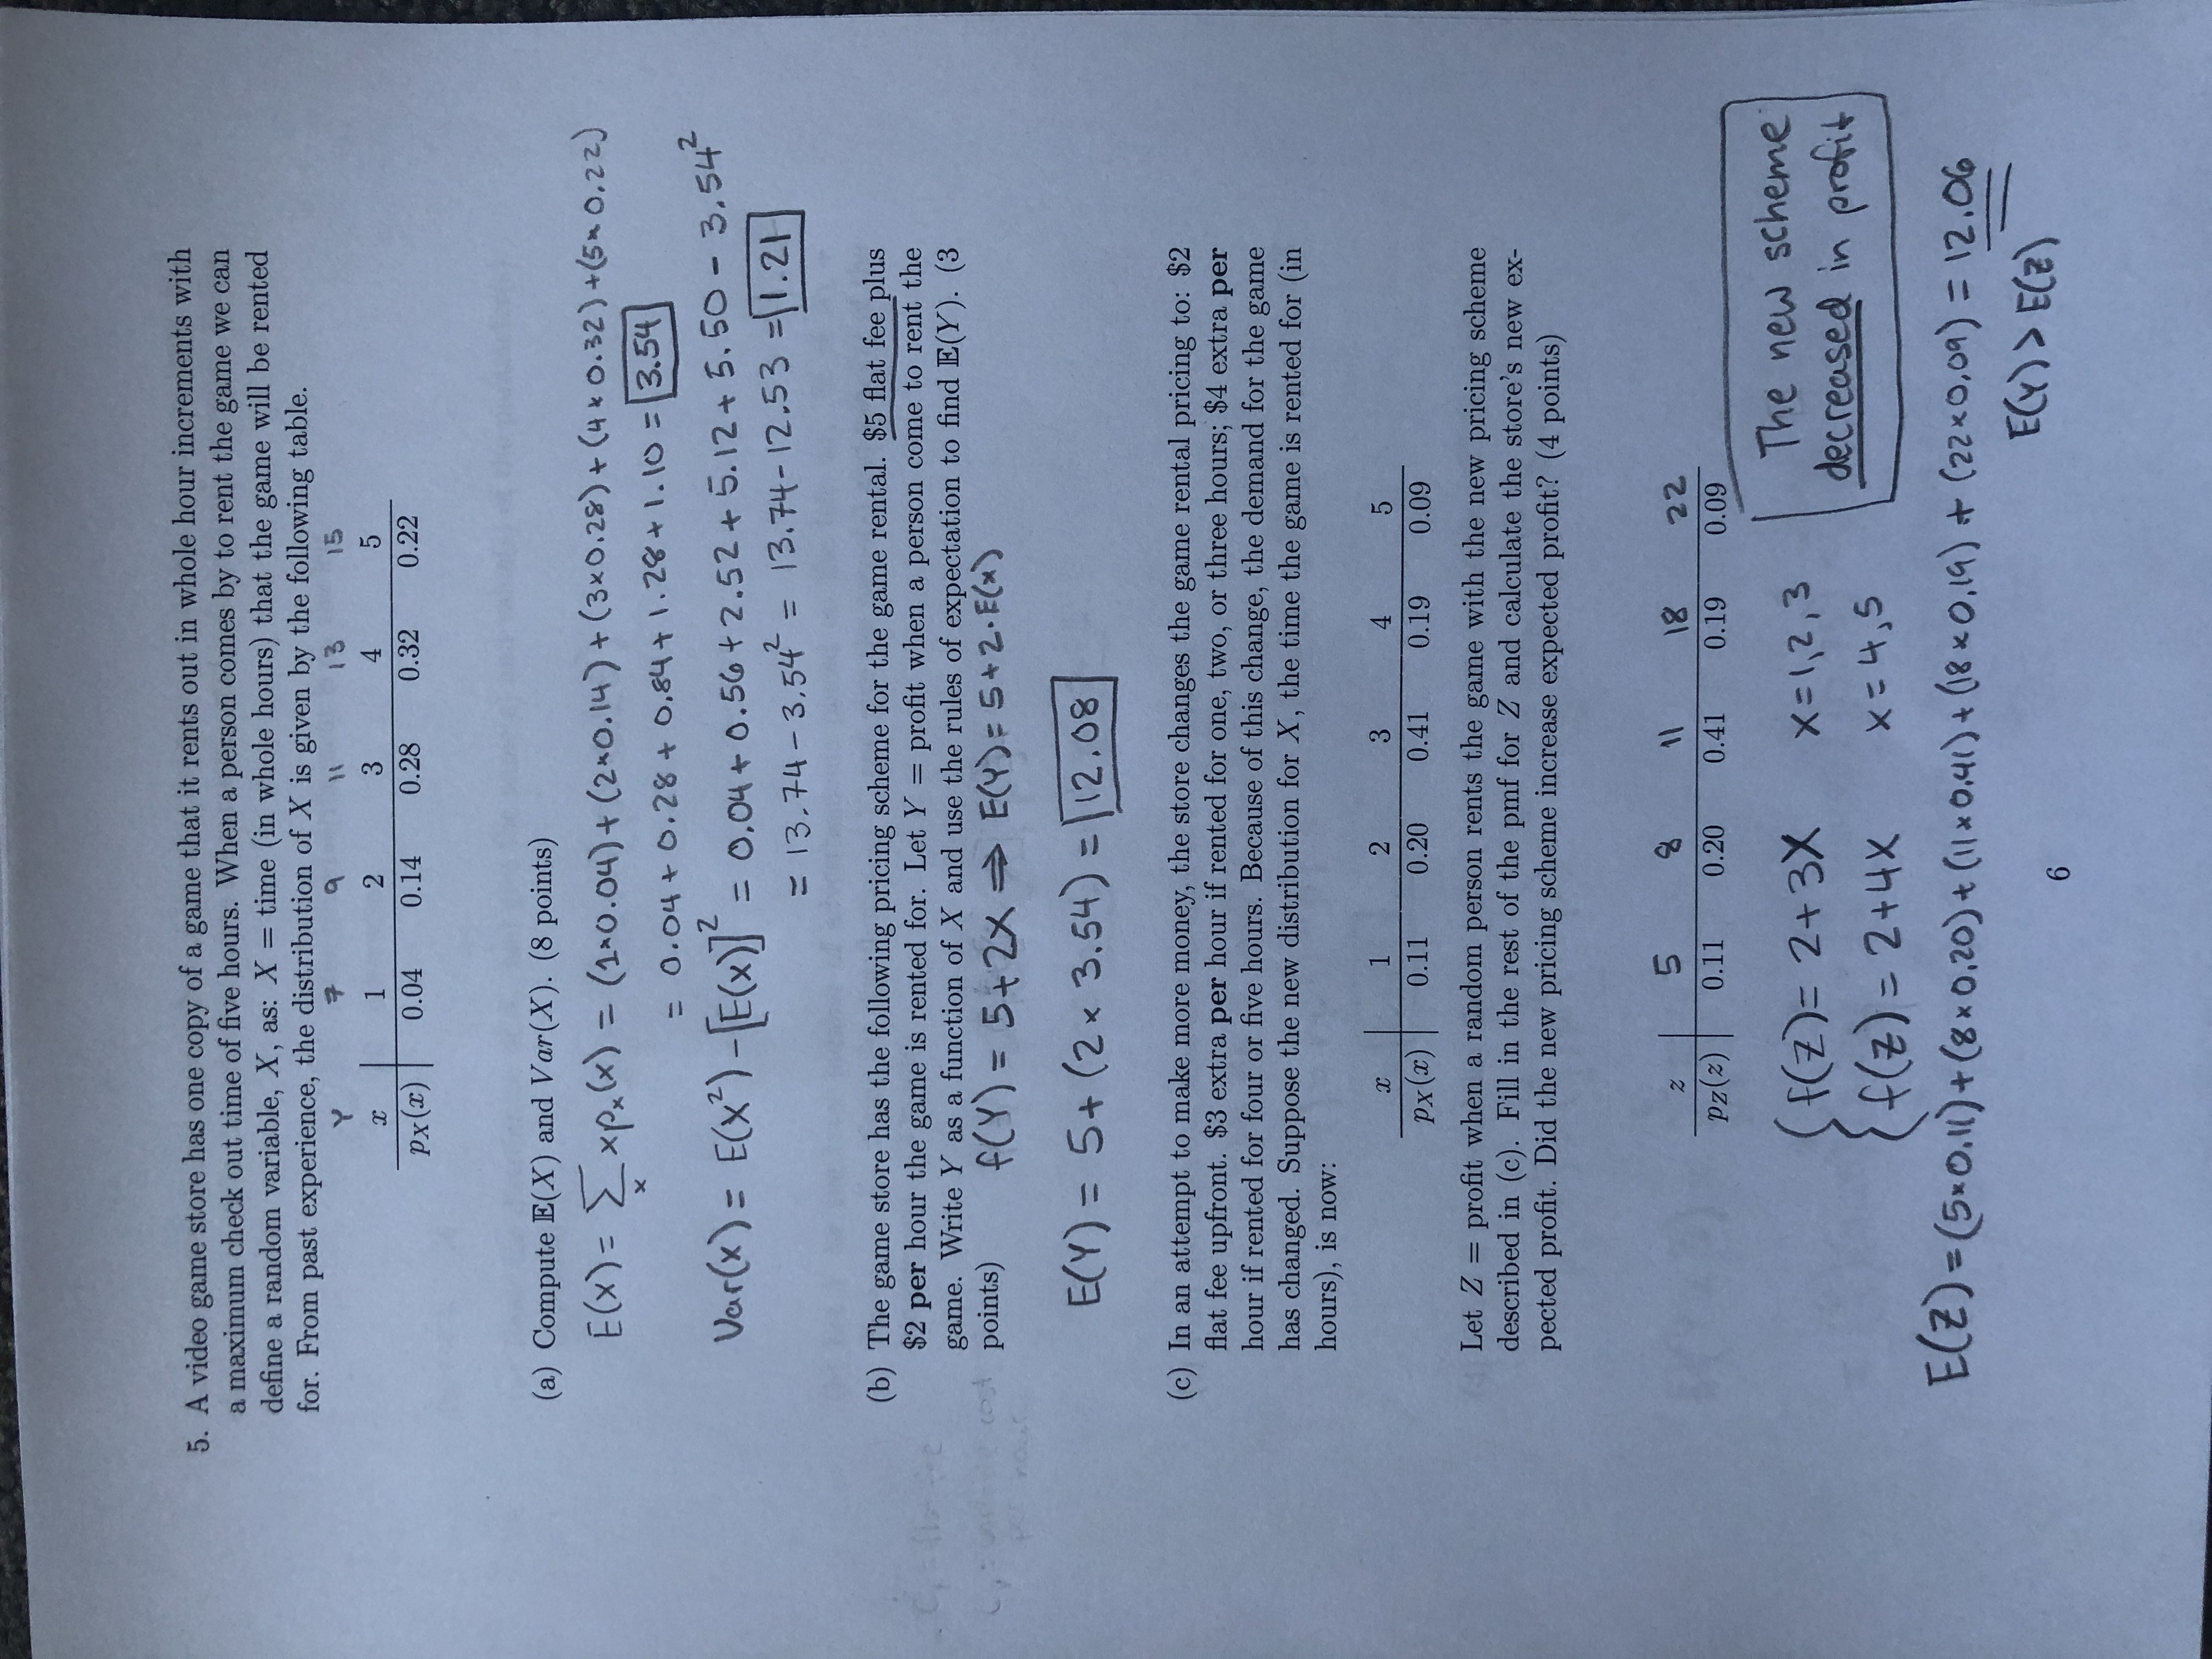 5. A video game store has one copy of a game that it rents out in whole hour increments with
a maximum check out time of five hours. When a person comes by to rent the game we can
define a random variable, X, as: X = time (in whole hours) that the game will be rented
for. From past experience, the distribution of X is given by the following table.
Y 7 9 11 13 15
x 1 2 3 4 5
pX(x) 0.04 0.14 0.28 0.32 0.22
(a) Compute 𝔼(X) and Var(X). (8 points)
E(x) = Σx xpx(x) = (1×0.04) + (2×0.14) + (3×0.28) + (4×0.32) + (5×0.22)
= 0.04 + 0.28 + 0.84 + 1.28 + 1.10 = 3.54
Var(x) = E(x²) - [E(x)]² = 0.04 + 0.56 + 2.52 + 5.12 + 5.50 - 3.54²
= 13.74 - 3.54² = 13.74 - 12.53 = 1.21
(b) The game store has the following pricing scheme for the game rental. $5 flat fee plus
$2 per hour the game is rented for. Let Y = profit when a person come to rent the
game. Write Y as a function of X and use the rules of expectation to find 𝔼(Y). (3
points) f(Y) = 5+2X ⇒ E(Y) = 5+2·E(x)
E(Y) = 5+ (2 × 3.54) = 12.08
(c) In an attempt to make more money, the store changes the game rental pricing to: $2
flat fee upfront. $3 extra per hour if rented for one, two, or three hours; $4 extra per
hour if rented for four or five hours. Because of this change, the demand for the game
has changed. Suppose the new distribution for X, the time the game is rented for (in
hours), is now:
x 1 2 3 4 5
pX(x) 0.11 0.20 0.41 0.19 0.09
Let Z = profit when a random person rents the game with the new pricing scheme
described in (c). Fill in the rest of the pmf for Z and calculate the store's new ex-
pected profit. Did the new pricing scheme increase expected profit? (4 points)
z 5 8 11 18 22
pZ(z) 0.11 0.20 0.41 0.19 0.09
f(z) = 2+3X x=1,2,3
f(z) = 2+4X x=4,5
The new scheme
decreased in profit
E(Z) = (5×0.11) + (8×0.20) + (11×0.41) + (18×0.19) + (22×0.09) = 12.06
E(Y) > E(Z)
6